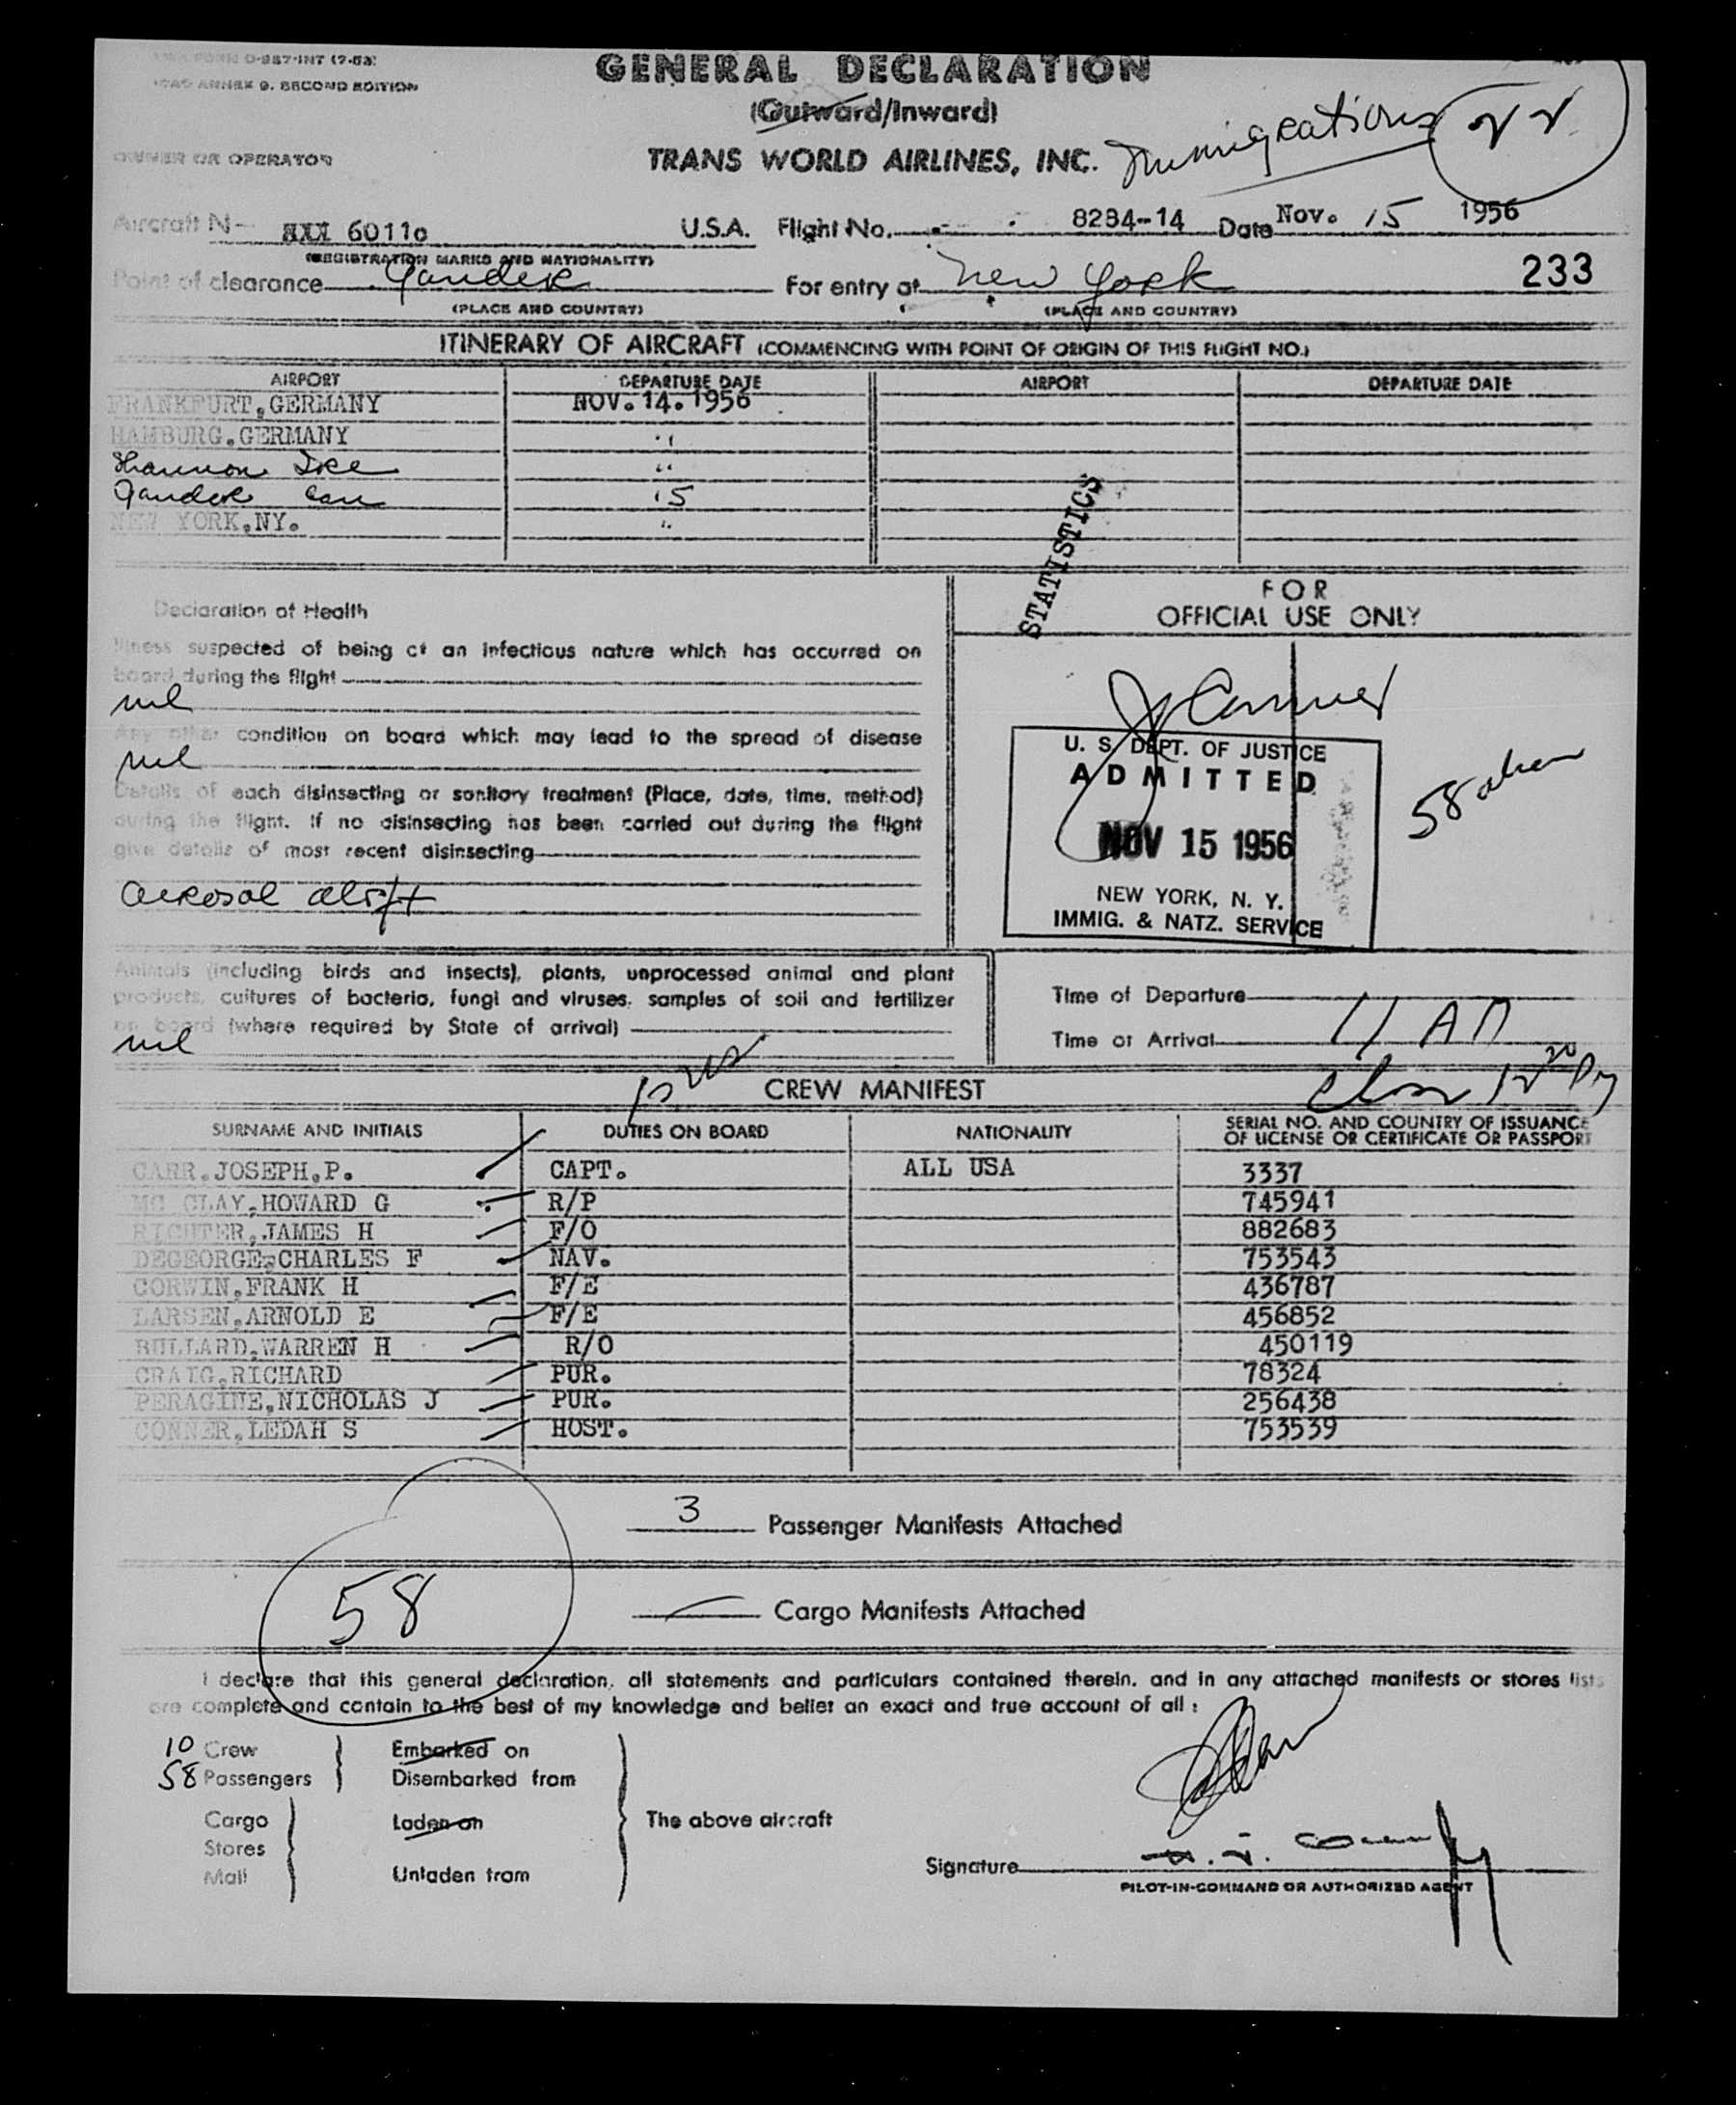 FORM O-987-INT (7-53)
ICAO ANNEX 9. SECOND EDITION
GENERAL DECLARATION
(Outward/Inward)
OWNER OR OPERATOR
TRANS WORLD AIRLINES, INC.
Immigrations
Aircraft N- 6011c U.S.A. Flight No. 8284-14 Date Nov. 15 1956
(REGISTRATION MARKS AND NATIONALITY)
Point of clearance Gander For entry at New York 233
(PLACE AND COUNTRY) (PLACE AND COUNTRY)
ITINERARY OF AIRCRAFT (COMMENCING WITH POINT OF ORIGIN OF THIS FLIGHT NO.)
AIRPORT DEPARTURE DATE AIRPORT DEPARTURE DATE
FRANKFURT,GERMANY NOV.14.1956
HAMBURG,GERMANY "
Shannon Ire "
Gander Can 15
NEW YORK,NY. "
STATISTICS
Declaration of Health
Illness suspected of being of an infectious nature which has occurred on
board during the flight
nil
Any other condition on board which may lead to the spread of disease
nil
Details of each disinsecting or sanitary treatment (Place, date, time, method)
during the flight. If no disinsecting has been carried out during the flight
give details of most recent disinsecting
aerosol
FOR
OFFICIAL USE ONLY
U. S. DEPT. OF JUSTICE
ADMITTED
NOV 15 1956
NEW YORK, N. Y.
IMMIG. & NATZ. SERVICE
58 alien
Animals (including birds and insects), plants, unprocessed animal and plant
products, cultures of bacteria, fungi and viruses, samples of soil and fertilizer
on board (where required by State of arrival)
nil
Time of Departure
Time of Arrival 11 AM
CREW MANIFEST
SURNAME AND INITIALS DUTIES ON BOARD NATIONALITY SERIAL NO. AND COUNTRY OF ISSUANCE
OF LICENSE OR CERTIFICATE OR PASSPORT
CARR.JOSEPH.P. CAPT. ALL USA 3337
MC CLAY,HOWARD G R/P 745941
RICHTER,JAMES H F/O 882683
DEGEORGE,CHARLES F NAV. 753543
CORWIN,FRANK H F/E 436787
LARSEN,ARNOLD E F/E 456852
BULLARD,WARREN H R/O 450119
CRAIG,RICHARD PUR. 78324
PERAGINE,NICHOLAS J PUR. 256438
CONNER,LEDAH S HOST. 753539
3 Passenger Manifests Attached
58
Cargo Manifests Attached
I declare that this general declaration, all statements and particulars contained therein, and in any attached manifests or stores lists
are complete and contain to the best of my knowledge and belief an exact and true account of all :
10 Crew Embarked on
58 Passengers Disembarked from
Cargo Laden on The above aircraft
Stores
Mail Unladen from
Signature
PILOT-IN-COMMAND OR AUTHORIZED AGENT